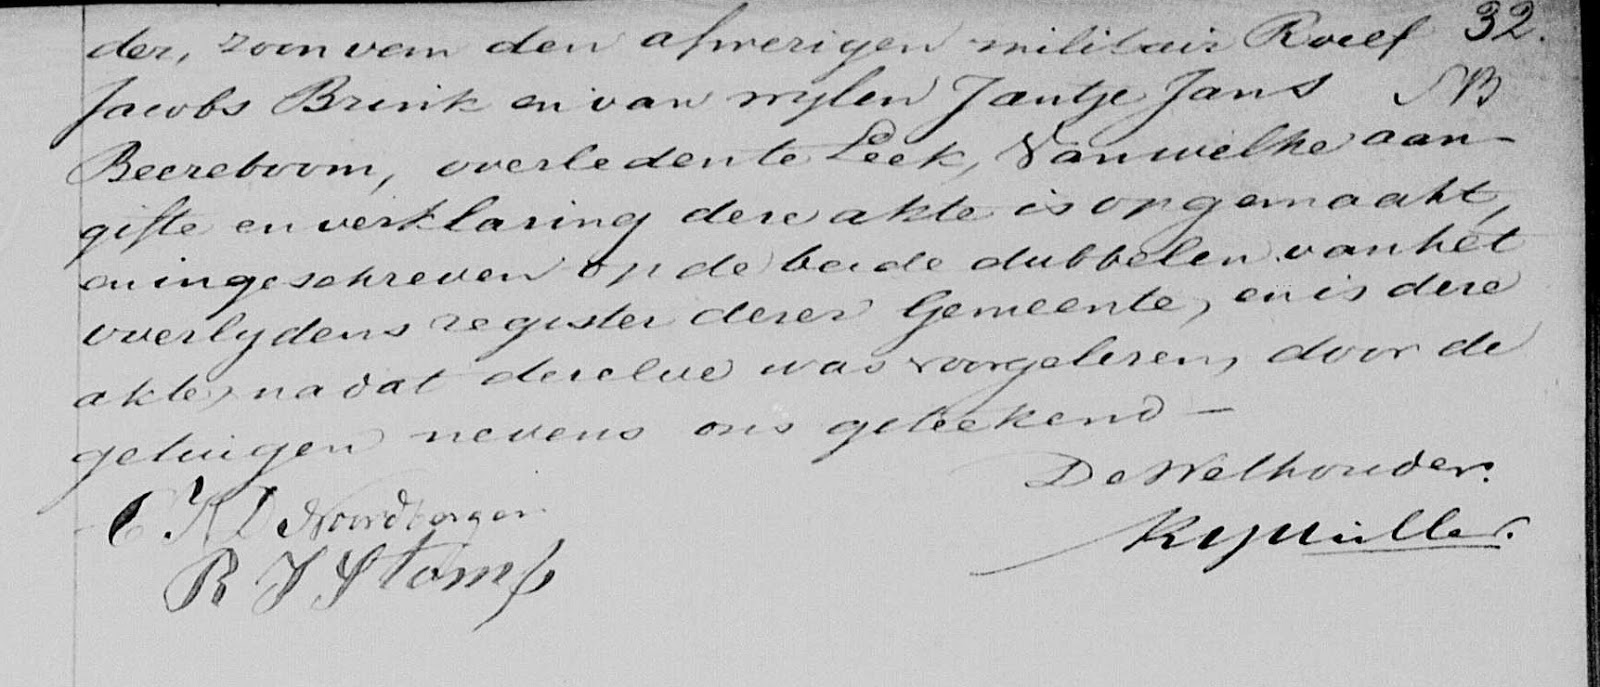 der, zoon van den afwezigen militair Roelf 32.
Jacobs Brink en van wylen Jantje Jans
Beereboom, overleden te Leek, Van welke aan-
gifte en verklaring deze akte is opgemaakt,
en ingeschreven op de beide dubbelen van het
overlydens register dezer Gemeente, en is deze
akte, na dat dezelve was voorgelezen, door de
getuigen nevens ons geteekend —
De Wethouder.
C K D Noordbergen
R J Stomp
Müller.